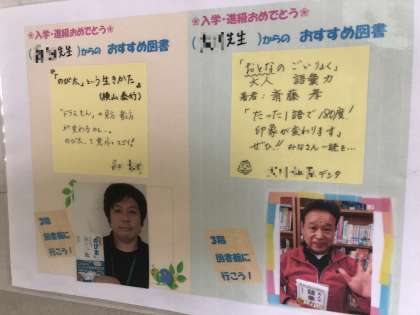 ❀入学・進級おめでとう❀
先生)からの おすすめ図書
「のび太」という生きかた
(横山泰行)
「ドラえもん」の見方
が変わるかも…。
3階
図書館に
行こう！
❀入学・進級おめでとう❀
先生)からの おすすめ図書
「おとなのごいりょく」
大人 語彙力
著者：斎藤 孝
「たった1語で180度！
印象が変わります」
ぜひ!! みなさん一読を…
3階
図書館に
行こう！